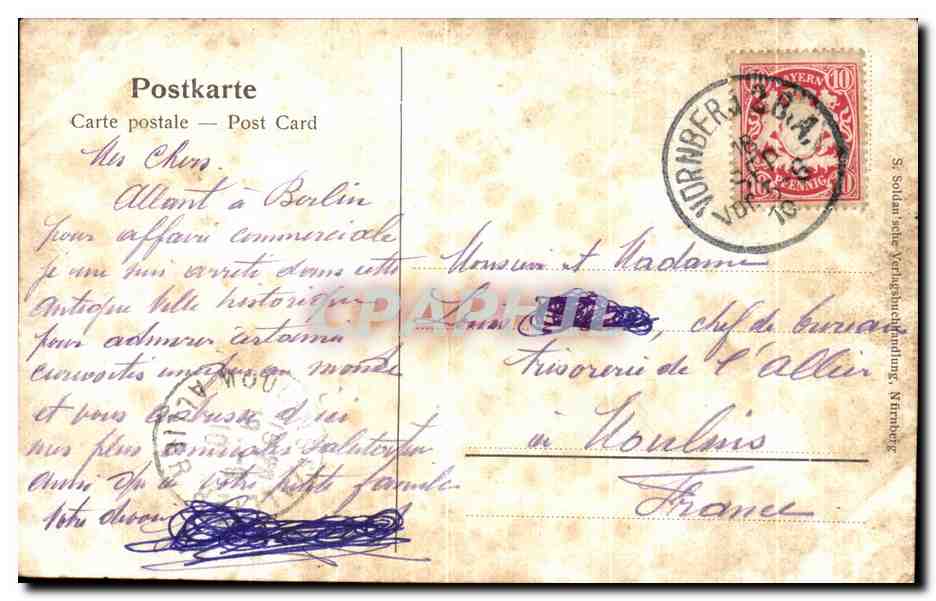 Postkarte
Carte postale — Post Card
Mes Chers
Allant à Berlin
pour affaire commerciale
je me suis arreté dans cette
antique ville historique
pour admirer certaines
curiosités uniques au monde
et vous adresse d'ici
mes plus amicales salutations
ainsi qu'à votre petite famille
Votre dévoué
BAYERN 10
PFENNIG
NÜRNBERG 2 B.A.
18
VOR
10
Monsieur et Madame
chef de bureau
trésorerie de l'Allier
à Moulins
France
S. Soldan'sche Verlagsbuchhandlung, Nürnberg
ALLIER
CPAPHIL